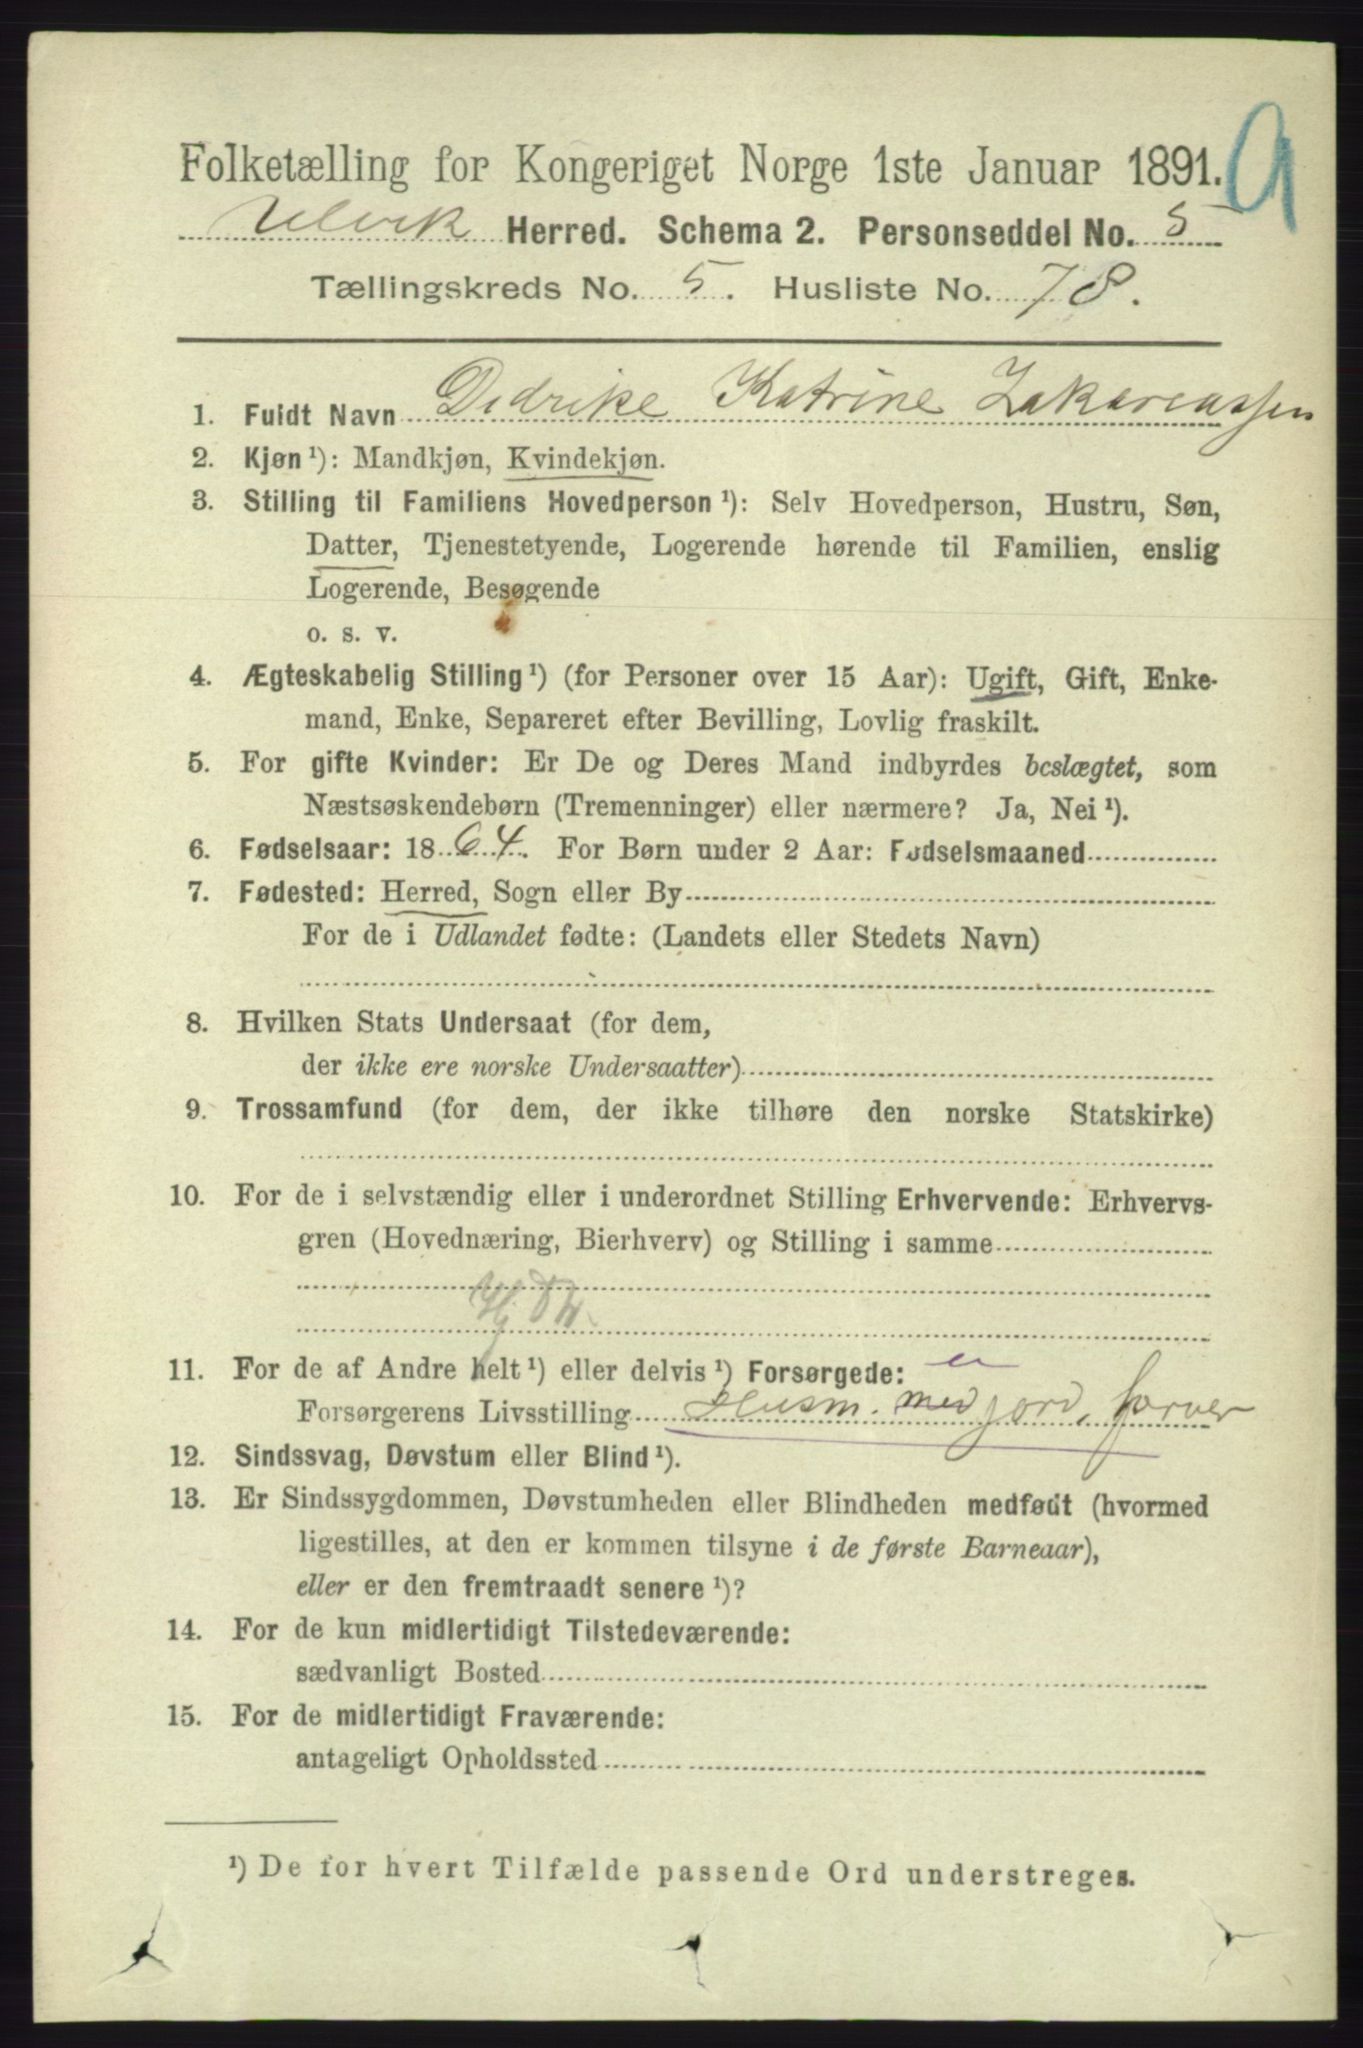 9
Folketælling for Kongeriget Norge 1ste Januar 1891.
Ulvik Herred. Schema 2. Personseddel No. 5
Tællingskreds No. 5. Husliste No. 78.
1. Fuldt Navn Didrike Katrine Zakariassen
2. Kjøn ¹): Mandkjøn, Kvindekjøn.
3. Stilling til Familiens Hovedperson ¹): Selv Hovedperson, Hustru, Søn,
Datter, Tjenestetyende, Logerende hørende til Familien, enslig
Logerende, Besøgende
o. s. v.
4. Ægteskabelig Stilling ¹) (for Personer over 15 Aar): Ugift, Gift, Enke-
mand, Enke, Separeret efter Bevilling, Lovlig fraskilt.
5. For gifte Kvinder: Er De og Deres Mand indbyrdes beslægtet, som
Næstsøskendebørn (Tremenninger) eller nærmere? Ja, Nei ¹).
6. Fødselsaar: 1864. For Børn under 2 Aar: Fødselsmaaned
7. Fødested: Herred, Sogn eller By
For de i Udlandet fødte: (Landets eller Stedets Navn)
8. Hvilken Stats Undersaat (for dem,
der ikke ere norske Undersaatter)
9. Trossamfund (for dem, der ikke tilhøre den norske Statskirke)
10. For de i selvstændig eller i underordnet Stilling Erhvervende: Erhvervs-
gren (Hovednæring, Bierhverv) og Stilling i samme
11. For de af Andre helt ¹) eller delvis ¹) Forsørgede:
Forsørgerens Livsstilling Husm. med jord, farver
12. Sindssvag, Døvstum eller Blind ¹).
13. Er Sindssygdommen, Døvstumheden eller Blindheden medfødt (hvormed
ligestilles, at den er kommen tilsyne i de første Barneaar),
eller er den fremtraadt senere ¹)?
14. For de kun midlertidigt Tilstedeværende:
sædvanligt Bosted
15. For de midlertidigt Fraværende:
antageligt Opholdssted
¹) De for hvert Tilfælde passende Ord understreges.